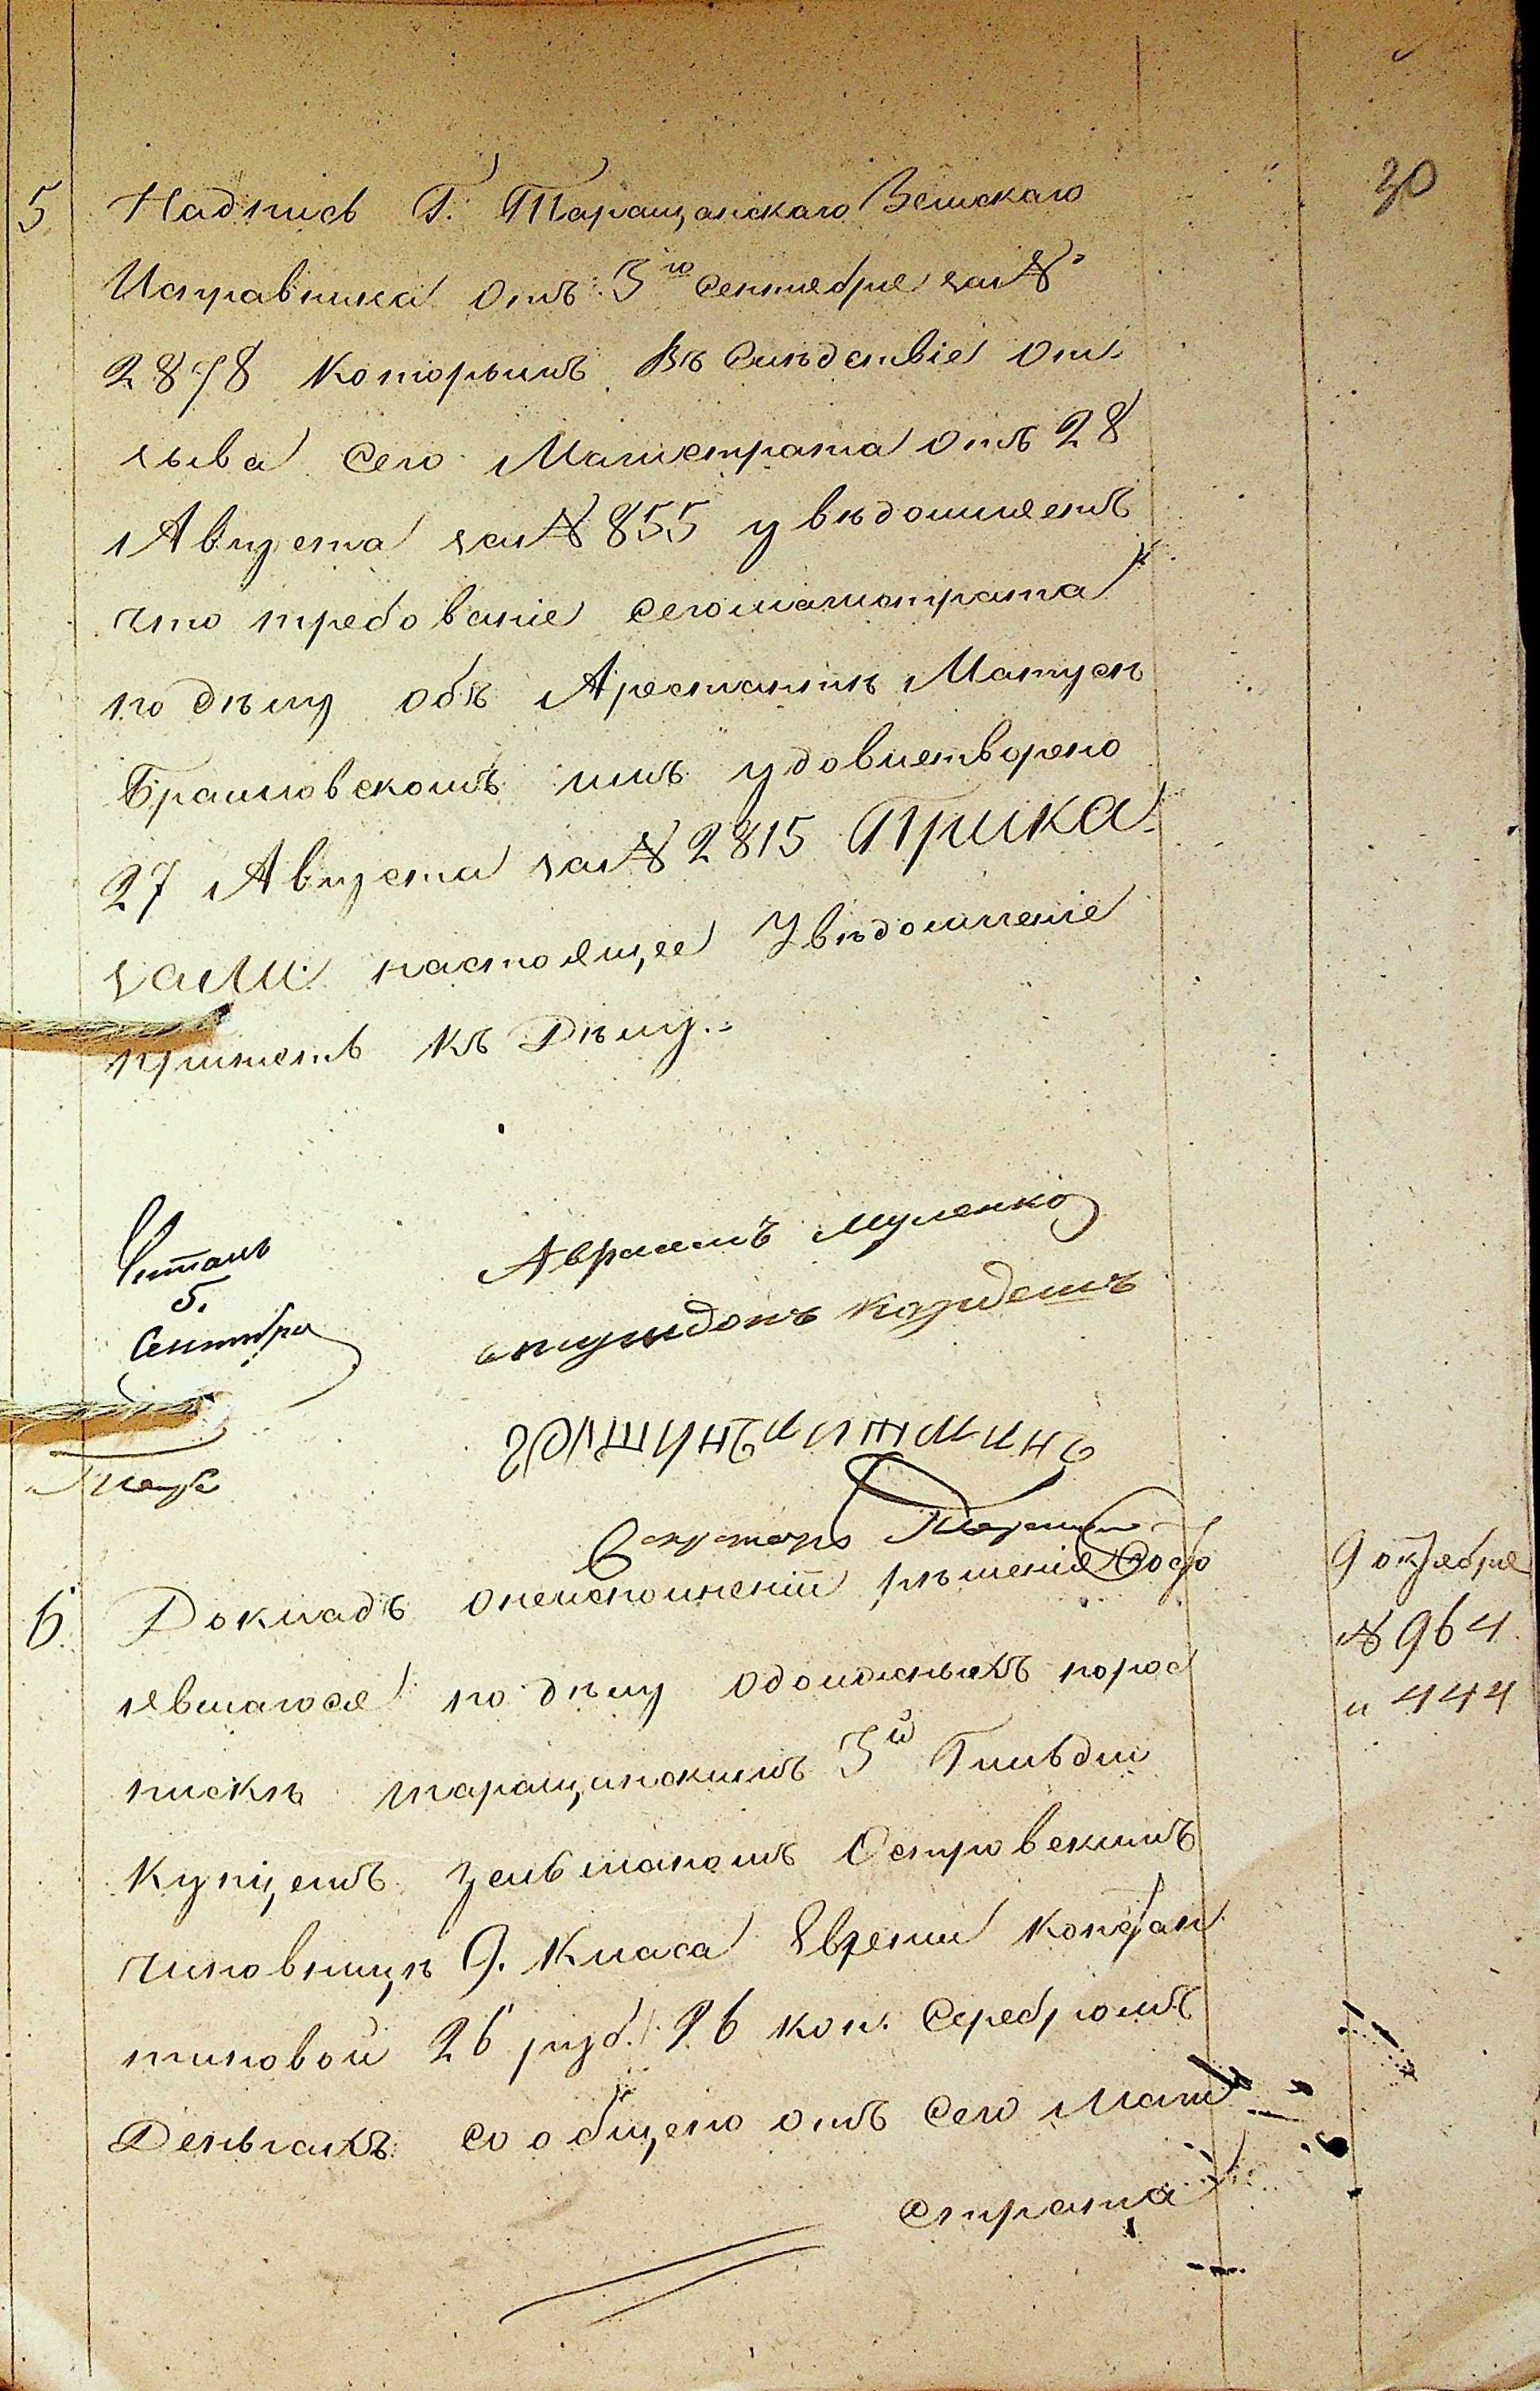 30
5 Надпись Г. Таращанскаго Земскаго
Исправника отъ 3го Сентября за №
2878 которымъ въ Слѣдствіе от-
зыва Сего Магистрата отъ 28
Августа за № 855 увѣдомляетъ
что требованіе Сего магистрата
по дѣлу объ Арестантѣ Матусѣ
Браиловскомъ имъ удовлетворено
27 Августа за № 2815 Прика-
зали настоящее Увѣдомленіе
приметь къ Дѣлу.
Читалъ
5.
Сентября
Авраамъ Муленко
Секретарь
6. Докладъ онеисполненіи рѣшенія Состо
явшагося по дѣлу одолжныхъ по рос
пискѣ таращанскимъ 3й Гильдіи
Купцемъ Зельманомъ Островскимъ
чиновницѣ 9. Класа Евгеніи Констан
тиновой 26 руб. 26 коп. Серебромъ
Деньгахъ сообщено отъ Сего Маги
страта
9 октября
№ 964
и 444